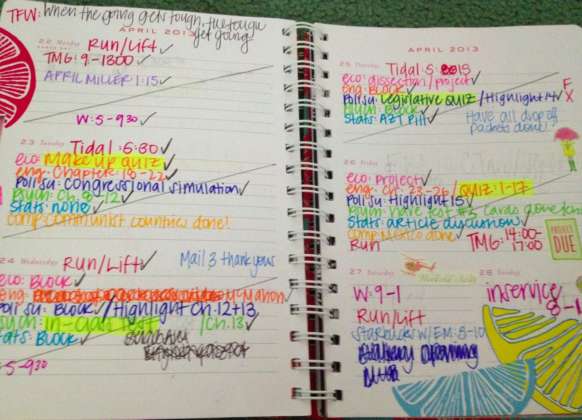 TFW: When the going gets tough, the tough
get going!
APRIL 2013
22 Monday
Run/Lift
TMG: 9-1300
APRIL MILLER 1:15
W: 5-930
23 Tuesday
Tidal: 5:30
eco: make up quiz
eng: Chapter 18-22
Poli Sci: Congressional simulation
Psych: Ch. 8-12
Stats: none
comp: communist countries done!
24 Wednesday
Run/Lift
Mail 3 thank yous
eco: BLOCK
eng: McMahon
Poli Sci: Block/Highlight Ch. 12+13
psych: in-class test /Ch. 13
stats: Block
5-930
APRIL 2013
25 Thursday
Tidal: 5:15
eco: dissection/project
eng: BLOCK
Poli Sci: Legislative QUIZ/Highlight 14
Psych: Block
Stats: AZT Pill
Have all drop off
packets done!
26 Friday
eco: project
eng: Ch. 23-26/QUIZ: 1-17
Poli Sci: Highlight 15
Psych: Have Test #2 cards done
Stats: article discussion
comp: Mexico done
Run
TMG: 14:00-
17:00
PROJECT
DUE
27 Saturday
W: 9-1
Run/Lift
Starbucks w/EM: 8-10
28 Sunday
inservice
8-1